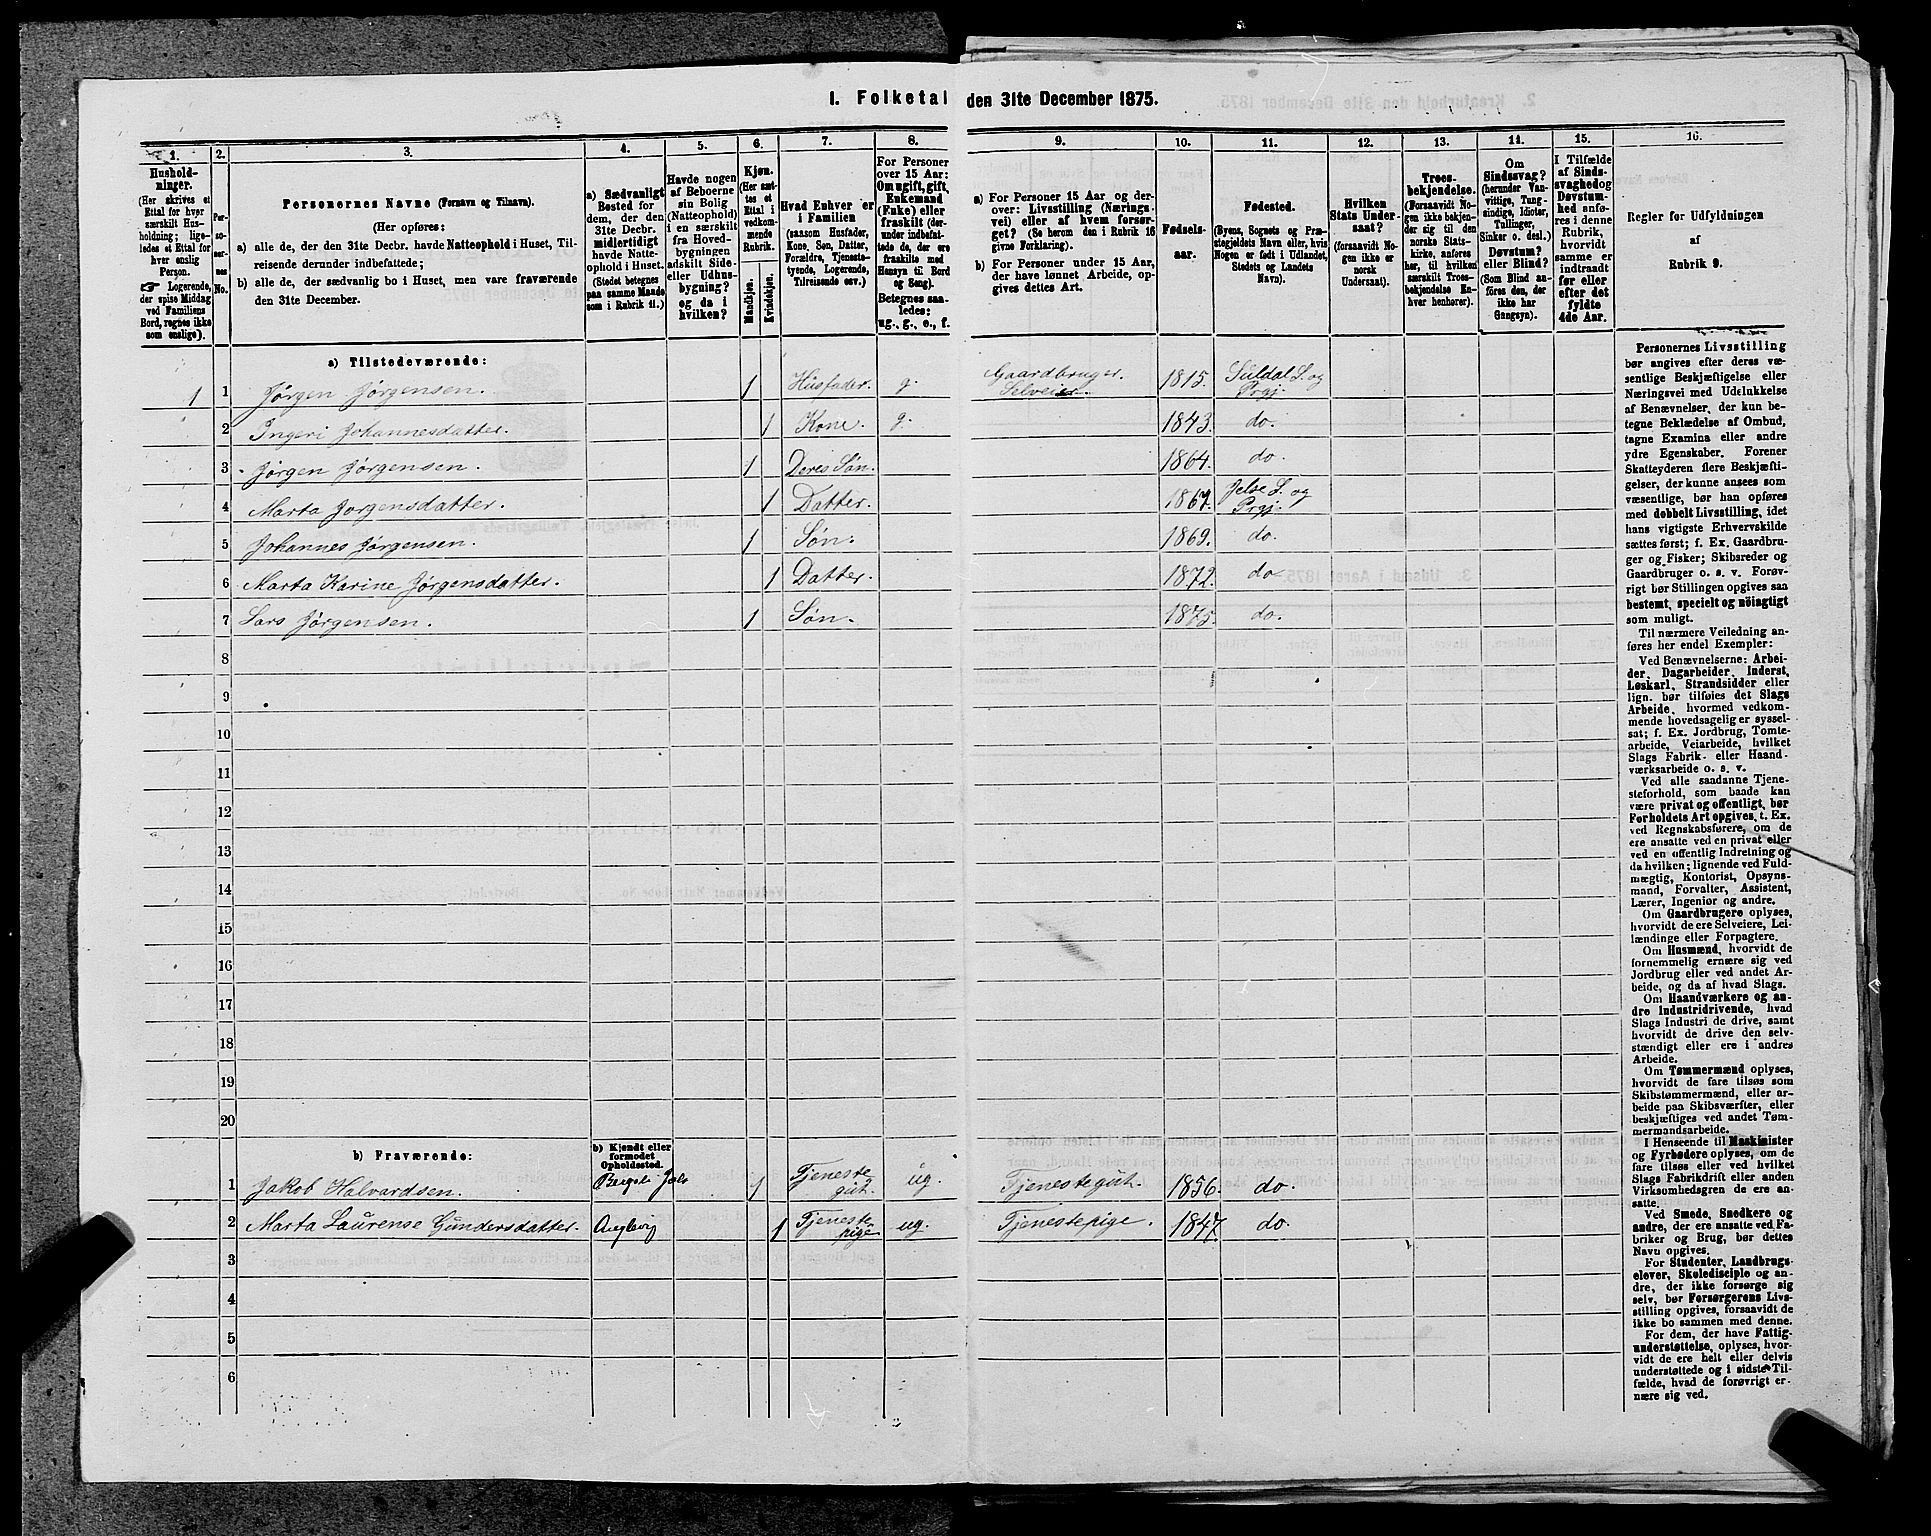 1. Folketal den 31te December 1875.
1. 2. 3. 4. 5. 6. 7. 8. 9. 10. 11. 12. 13. 14. 15. 16.
Husholdninger.
(Her skrives et
Ettal for hver
særskilt Hus-
holdning; lige-
ledes et Ettal for
hver enslig
Person.
☞ Logerende,
der spise Middag
ved Familiens
Bord, regnes ikke
som enslige).
Personernes No.
Personernes Navne (Fornavn og Tilnavn).
(Her opføres:
a) alle de, der den 31te Decbr. havde Natteophold i Huset, Til-
reisende derunder indbefattede;
b) alle de, der sædvanlig bo i Huset, men vare fraværende
den 31te December.
a) Sædvanligt
Bosted for
dem, der den
31te Decbr.
midlertidigt
havde Natte-
ophold i Huset.
(Stedet betegnes
paa samme Maade
som i Rubrik 11.)
Havde nogen
af Beboerne
sin Bolig
(Natteophold)
i en særskilt
fra Hoved-
bygningen
adskilt Side-
eller Udhus-
bygning?
og da i
hvilken?
Kjøn.
(Her sæt-
tes et
Ettal i
vedkom-
mende
Rubrik.
Mandkjøn.
Kvindekjøn.
Hvad Enhver er
i Familien
(saasom Husfader,
Kone, Søn, Datter,
Forældre, Tjeneste-
tyende, Logerende,
Tilreisende osv.)
For Personer
over 15 Aar:
Om ugift, gift,
Enkemand
(Enke) eller
fraskilt (der-
under indbefat-
tede de, der ere
fraskilte med
Hensyn til Bord
og Seng).
Betegnes saa-
ledes:
ug., g., e., f.
a) For Personer 15 Aar og der-
over: Livsstilling (Nærings-
vei) eller af hvem forsør-
get? (Se herom den i Rubrik 16
givne Forklaring).
b) For Personer under 15 Aar,
der have lønnet Arbeide, op-
gives dettes Art.
Fødsels-
aar.
Fødested.
(Byens, Sognets og Præ-
stegjeldets Navn eller, hvis
Nogen er født i Udlandet,
Stedets og Landets
Navn).
Hvilken
Stats Under-
saat?
(forsaavidt No-
gen ikke er
norsk
Undersaat).
Troes-
bekjendelse.
(Forsaavidt No-
gen ikke bekjen-
der sig til den
norske Stats-
kirke, anføres
her, til hvilken
særskilt Troes-
bekjendelse En-
hver henhører).
Om
Sindssvag?
(herunder Van-
vittige, Tung-
sindige, Idioter,
Tullinger,
Sinker o. desl.)
Døvstum?
eller Blind?
(Som Blind an-
føres den, der
ikke har
Gangsyn).
I Tilfælde
af Sinds-
svaghed og
Døvstum-
hed anfø-
res i denne
Rubrik,
hvorvidt
samme er
indtraadt
før eller
efter det
fyldte
4de Aar.
Regler for Udfyldningen
af
Rubrik 9.
a) Tilstedeværende:
1 1 Jørgen Jørgensen. 1 Husfader. g. Gaardbruger. Selveier. 1815. Suldal S. og Prgj.
2 Ingeri Johannesdatter. 1 Kone. g. 1843. do.
3 Jørgen Jørgensen. 1 Deres Søn. 1864. do.
4 Marta Jørgensdatter. 1 Datter. 1867. Jelse S. og Prgj.
5 Johannes Jørgensen. 1 Søn. 1869. do.
6 Marta Karine Jørgensdatter. 1 Datter. 1872. do
7 Lars Jørgensen. 1 Søn. 1875. do.
8
9
10
11
12
13
14
15
16
17
18
19
20
b) Fraværende:
b) Kjendt eller
formodet
Opholdssted.
1 Jakob Halvardsen. 1 Tjeneste gut. ug. Tjenestegut. 1856. do.
2 Marta Laurense Gundersdatter. 1 Tjeneste pige ug. Tjenestepige. 1847. do.
3
4
5
6
Personernes Livsstilling
bør angives efter deres væ-
sentlige Beskjæftigelse eller
Næringsvei med Udelukkelse
af Benævnelser, der kun be-
tegne Beklædelse af Ombud,
tagne Examina eller andre
ydre Egenskaber. Forener
Skatteyderen flere Beskjæfti-
gelser, der kunne ansees som
væsentlige, bør han opføres
med dobbelt Livsstilling, idet
hans vigtigste Erhvervskilde
sættes først; f. Ex. Gaardbru-
ger og Fisker; Skibsreder og
Gaardbruger o. s. v. Forøv-
rigt bør Stillingen opgives saa
bestemt, specielt og nöiagtigt
som muligt.
Til nærmere Veiledning an-
føres her endel Exempler:
Ved Benævnelserne: Arbei-
der, Dagarbeider, Inderst,
Løskarl, Strandsidder eller
lign. bør tilføies det Slags
Arbeide, hvormed vedkom-
mende hovedsagelig er syssel-
sat; f. Ex. Jordbrug, Tomte-
arbeide, Veiarbeide, hvilket
Slags Fabrik- eller Haand-
værksarbeide o. s. v.
Ved alle saadanne Tjene-
steforhold, som baade kan
være privat og offentligt, bør
Forholdets Art opgives, t. Ex.
ved Regnskabsførere, om de
ere ansatte ved en privat eller
ved en offentlig Indretning og
da hvilken; lignende ved Fuld-
mægtig, Kontorist, Opsyns-
mand, Forvalter, Assistent,
Lærer, Ingeniør og andre.
Om Gaardbrugere oplyses,
hvorvidt de ere Selveiere, Lei-
lændinge eller Forpagtere.
Om Husmænd, hvorvidt de
fornemmelig ernære sig ved
Jordbrug eller ved andet Ar-
beide, og da af hvad Slags.
Om Haandværkere og an-
dre Industridrivende, hvad
Slags Industri de drive, samt
hvorvidt de drive den selv-
stændigt eller ere i andres
Arbeide.
Om Tømmermænd oplyses,
hvorvidt de fare tilsøs som
Skibstømmermænd, eller ar-
beide paa Skibsværfter, eller
beskjæftiges ved andet Tøm-
mermandsarbeide.
I Henseende til Maskinister
og Fyrbødere oplyses, om de
fare tilsøs eller ved hvilket
Slags Fabrikdrift eller anden
Virksomhedsgren de ere an-
satte.
Ved Smede, Snedkere og
andre, der ere ansatte ved Fa-
briker og Brug, bør dettes
Navn opgives.
For Studenter, Landbrugs-
elever, Skoledisciple og an-
dre, der ikke forsørge sig
selv, bør Forsørgerens Livs-
stilling opgives, forsaavidt de
ikke bo sammen med denne.
For dem, der have Fattig-
understøttelse, oplyses, hvor-
vidt de ere helt eller delvis
understøttede og i sidste Til-
fælde, hvad de forøvrigt er-
nære sig ved.